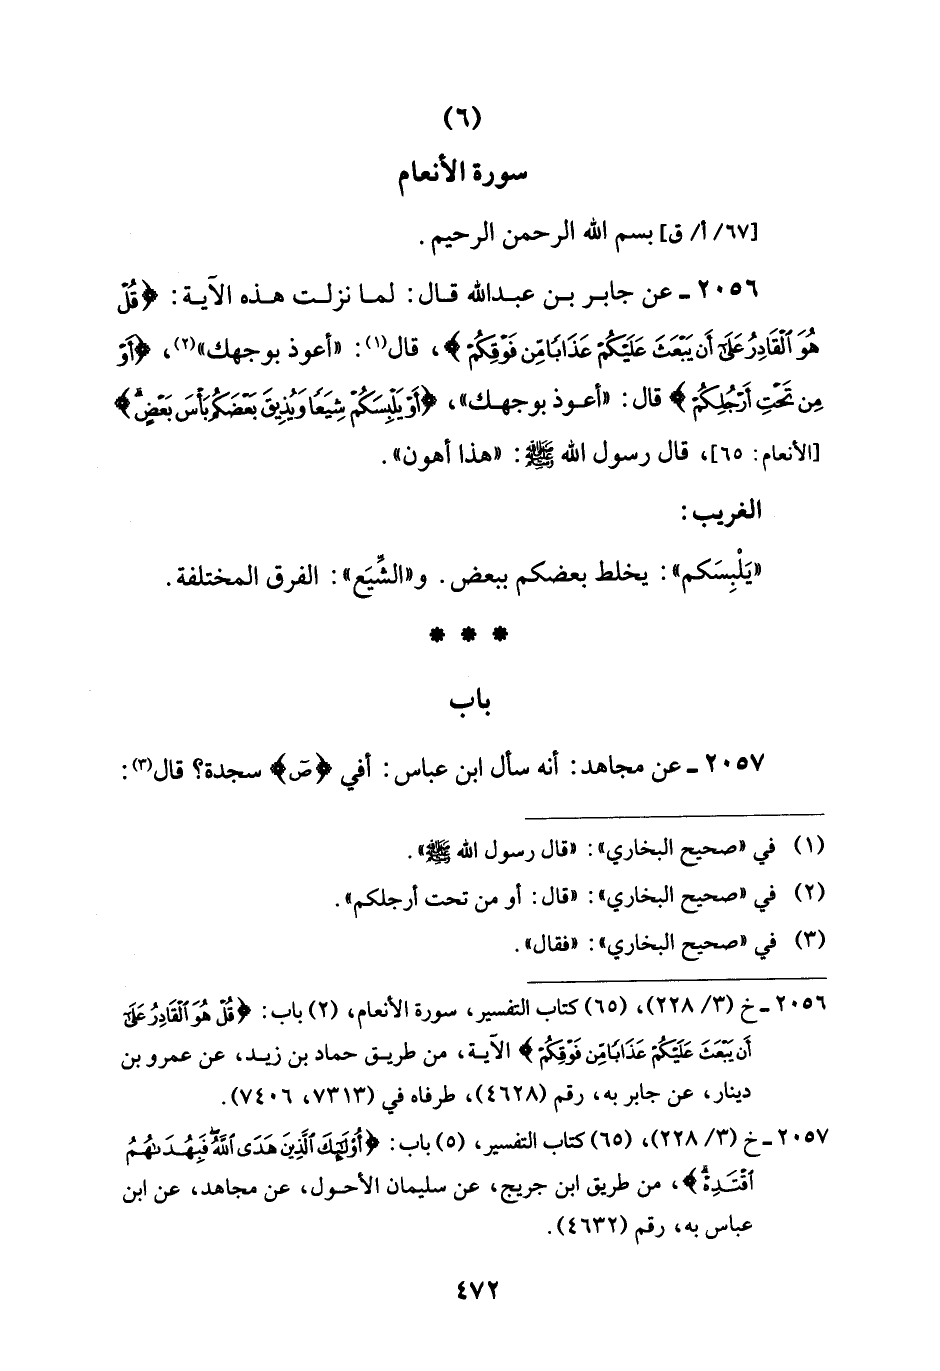 (٦)
سورة الأنعام
[٦٧/ أ/ ق] بسم الله الرحمن الرحيم.
٢٠٥٦ ـ عن جابر بن عبدالله قال: لما نزلت هذه الآية: ﴿قُلْ
هُوَ ٱلْقَادِرُ عَلَىٰٓ أَن يَبْعَثَ عَلَيْكُمْ عَذَابًا مِّن فَوْقِكُمْ﴾، قال(١): «أعوذ بوجهك»(٢)، ﴿أَوْ
مِن تَحْتِ أَرْجُلِكُمْ﴾ قال: «أعوذ بوجهك»، ﴿أَوْ يَلْبِسَكُمْ شِيَعًا وَيُذِيقَ بَعْضَكُم بَأْسَ بَعْضٍ ۗ﴾
[الأنعام: ٦٥]، قال رسول الله ﷺ: «هذا أهون».
الغريب:
«يَلْبِسَكم»: يخلط بعضكم ببعض. و«الشِّيَع»: الفرق المختلفة.
* * *
باب
٢٠٥٧ ـ عن مجاهد: أنه سأل ابن عباس: أفي ﴿صٓ﴾ سجدة؟ قال(٣):
(١) في «صحيح البخاري»: «قال رسول الله ﷺ».
(٢) في «صحيح البخاري»: «قال: أو من تحت أرجلكم».
(٣) في «صحيح البخاري»: «فقال».
٢٠٥٦ ـ خ (٣/ ٢٢٨)، (٦٥) كتاب التفسير، سورة الأنعام، (٢) باب: ﴿قُلْ هُوَ ٱلْقَادِرُ عَلَىٰٓ
أَن يَبْعَثَ عَلَيْكُمْ عَذَابًا مِّن فَوْقِكُمْ﴾ الآية، من طريق حماد بن زيد، عن عمرو بن
دينار، عن جابر به، رقم (٤٦٢٨)، طرفاه في (٧٣١٣، ٧٤٠٦).
٢٠٥٧ ـ خ (٣/ ٢٢٨)، (٦٥) كتاب التفسير، (٥) باب: ﴿أُوْلَٰٓئِكَ ٱلَّذِينَ هَدَى ٱللَّهُ ۖ فَبِهُدَىٰهُمُ
ٱقْتَدِهْ ۗ﴾، من طريق ابن جريج، عن سليمان الأحول، عن مجاهد، عن ابن
عباس به، رقم (٤٦٣٢).
٤٧٢